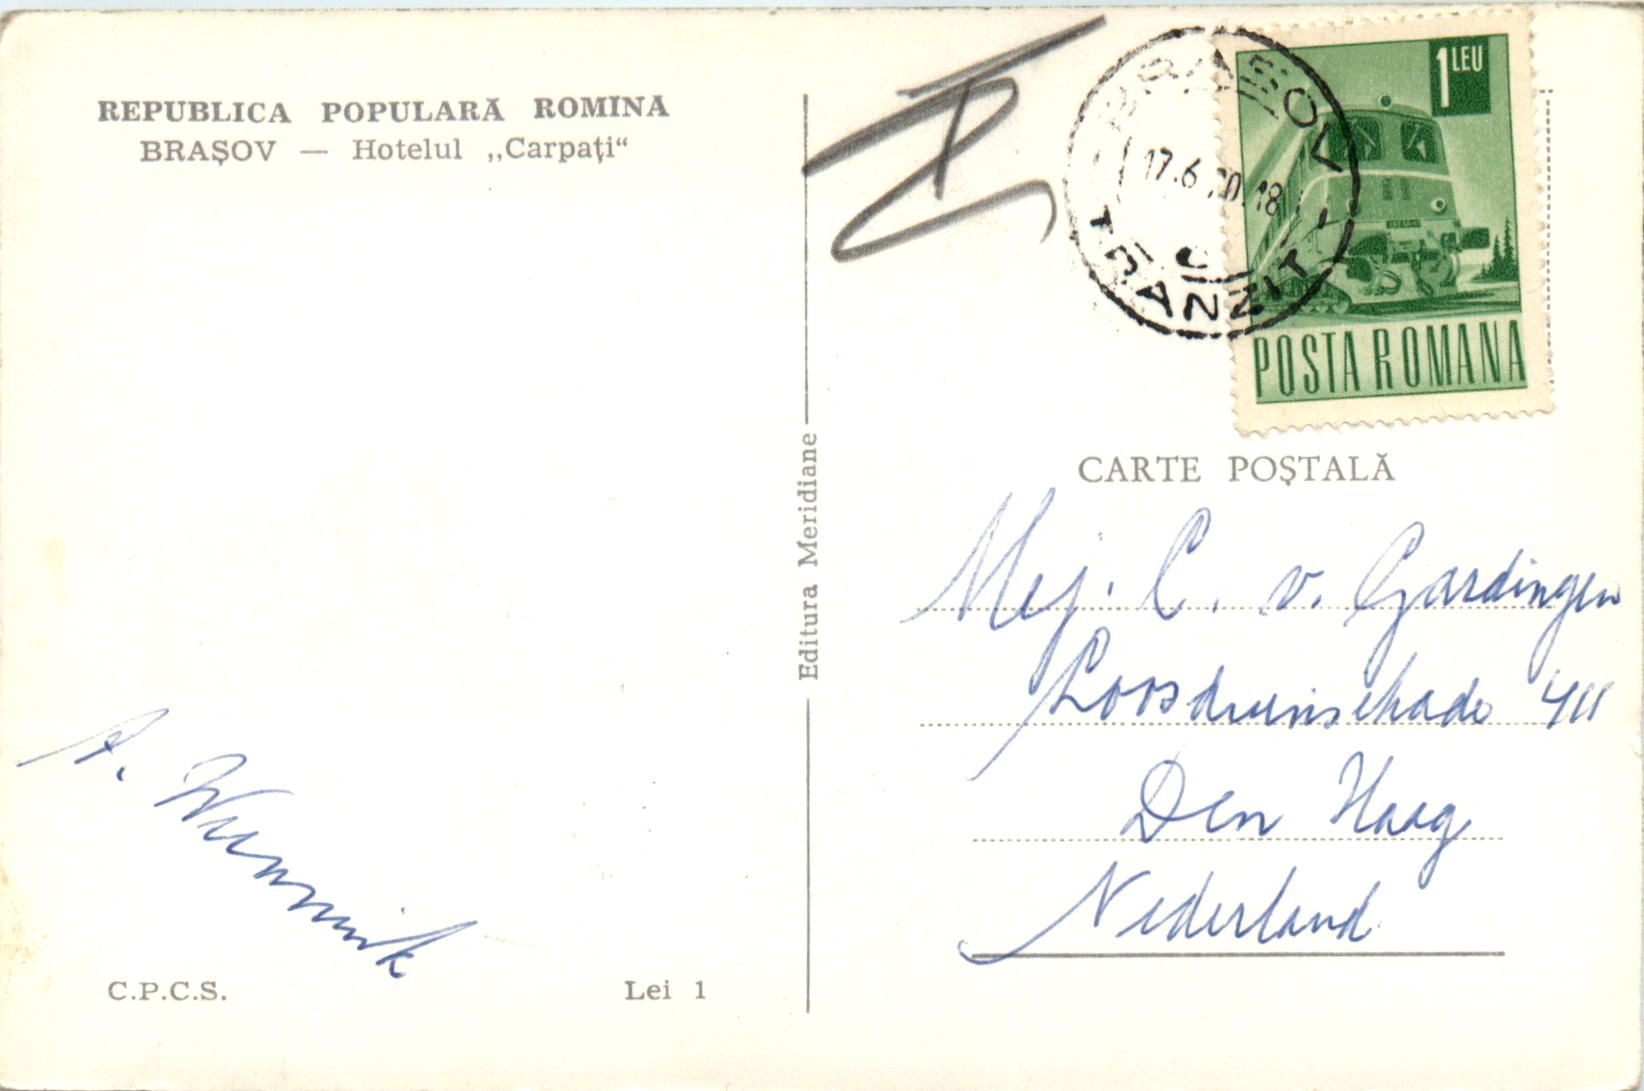 REPUBLICA POPULARĂ ROMINA
BRAȘOV — Hotelul „Carpați“
A.
C.P.C.S.
Lei 1
Editura Meridiane
BRASOV
17.6 18
TRANZIT
1 LEU
POSTA ROMANA
CARTE POȘTALĂ
Mej. C. v. Gardingen
Loosduinsekade 411
Den Haag
Nederland